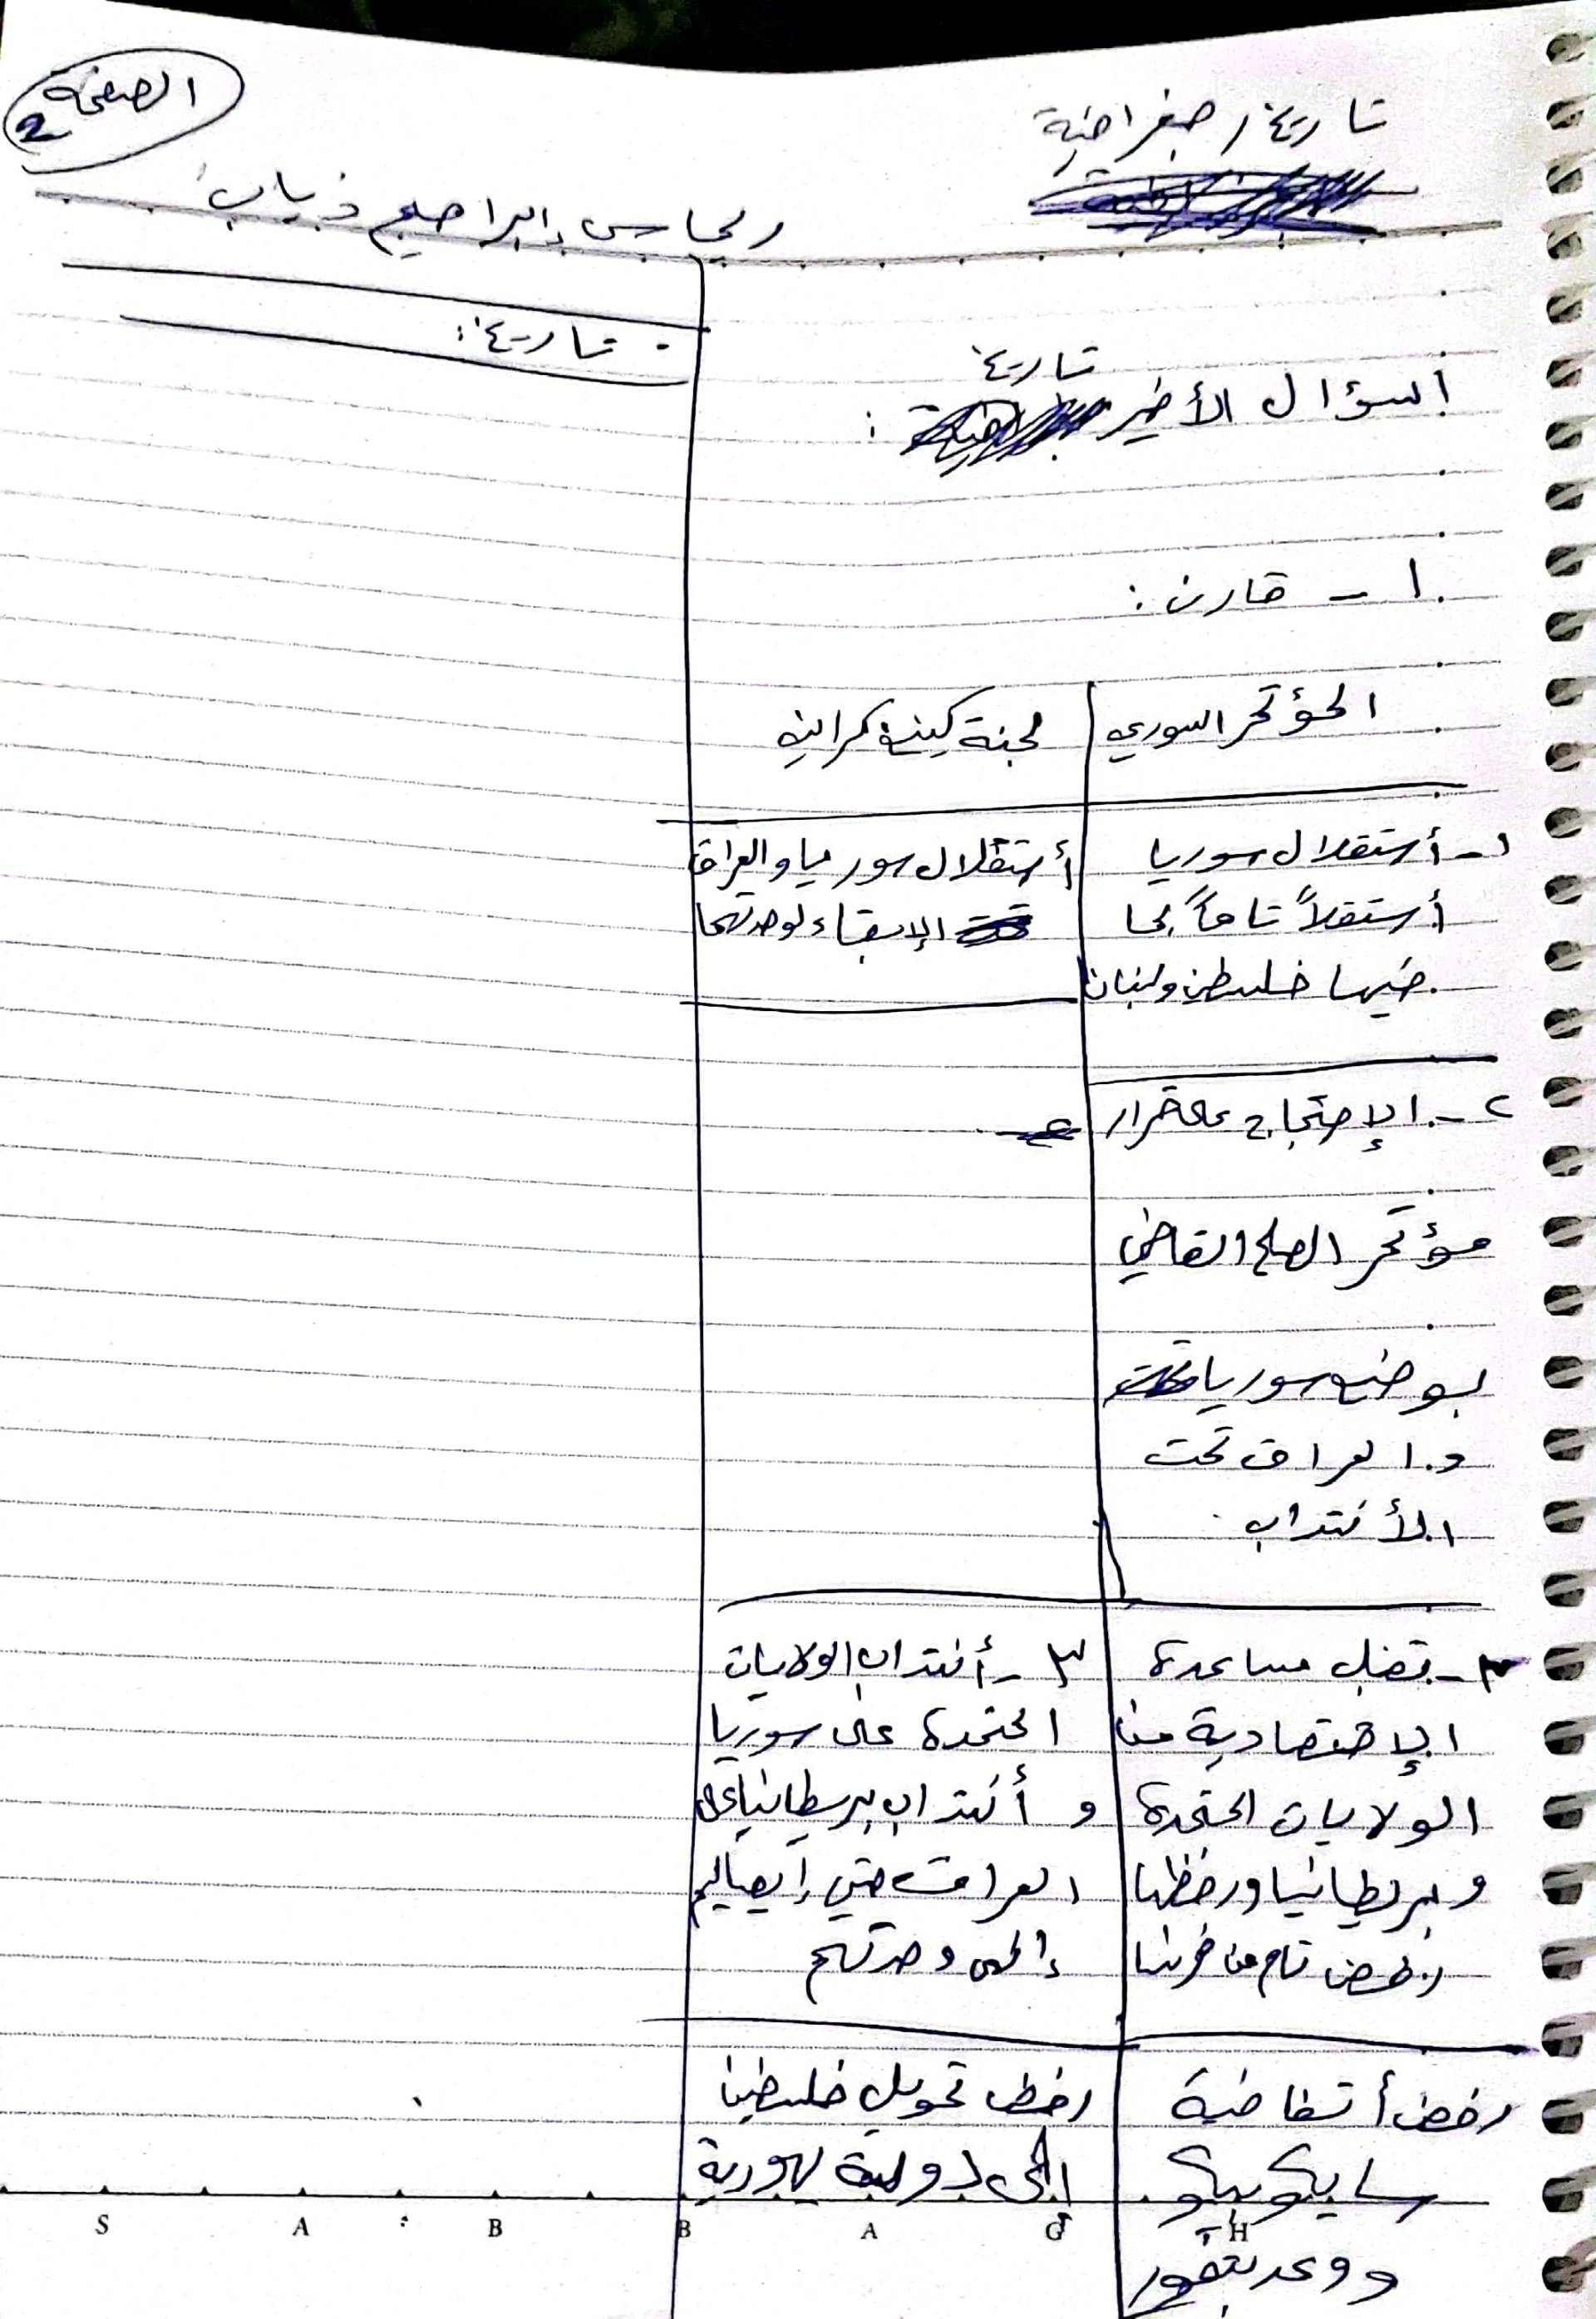 الصفحة 2
تاريخ / جغرافية
إبراهيم ذياب
تاريخ:
تاريخ
السؤال الأخير :
١ - قارن :
المؤتمر السوري
لجنة كينغ كراين
١- أستقلال سوريا
أستقلاً تاماً بما
فيها فلسطين ولبنان
أستقلال سوريا والعراق
الإبقاء لوحدتهما
٢- الإحتجاج على قرار
مؤتمر الصلح القاضي
بوضع سوريا
والعراق تحت
الأنتداب
٣- تفضل مساعدة
الإقتصادية من
الولايات المتحدة
وبريطانيا ورفضها
رفض تام من فرنسا
٣- أنتداب الولايات
المتحدة على سوريا
و أنتداب بريطانيا على
العراق حتى إيصاليم
إلى وحدتهم
رفض أتفاقية
سايكوبيكو
ووعد بلفور
رفض تحويل فلسطين
إلى دولة يهودية
S A B B A G H